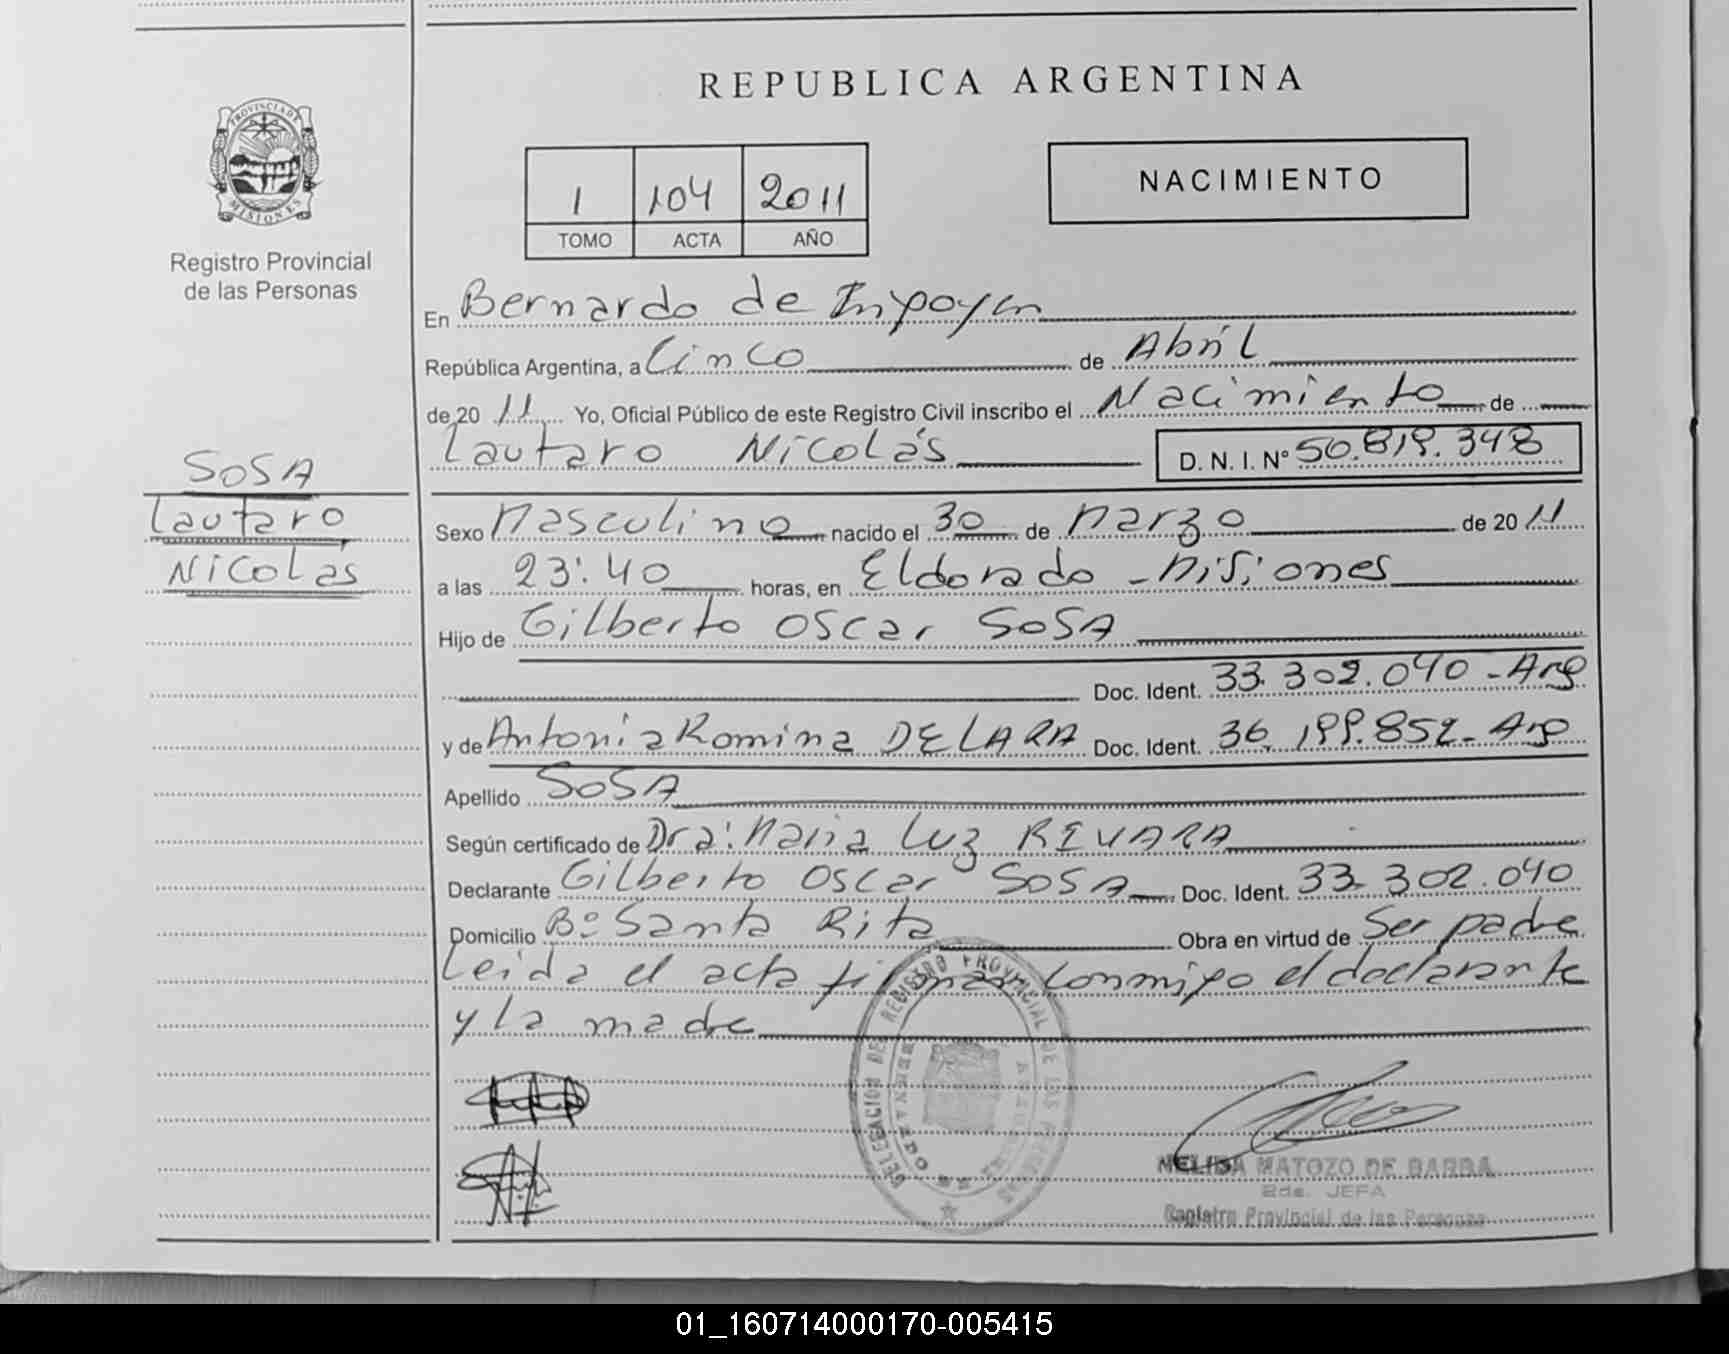 REPUBLICA ARGENTINA
PROVINCIA DE
MISIONES
Registro Provincial
de las Personas
1 104 2011
TOMO ACTA AÑO
NACIMIENTO
En Bernardo de Irigoyen
República Argentina, a Cinco de Abril
de 20 11 Yo, Oficial Público de este Registro Civil inscribo el Nacimiento de
Lautaro Nicolás D. N. I. Nº 50.819.348
SOSA
Lautaro
Nicolás
Sexo Masculino nacido el 30 de Marzo de 20 11
a las 23:40 horas, en Eldorado - Misiones
Hijo de Gilberto Oscar SOSA
Doc. Ident. 33.302.040 - Arg
y de Antonia Romina DE LARA Doc. Ident. 36.199.852 - Arg
Apellido SOSA
Según certificado de Dra: Maria Luz REVARA
Declarante Gilberto Oscar SOSA Doc. Ident. 33.302.040
Domicilio Bº Santa Rita Obra en virtud de Ser padre
Leida el acta firman conmigo el declarante
y la madre
DELEGACION DEL REGISTRO PROVINCIAL DE LAS PERSONAS
BERNARDO DE
NELIDA MATOZO DE BARBA
2da. JEFA
Registro Provincial de las Personas
01_160714000170-005415